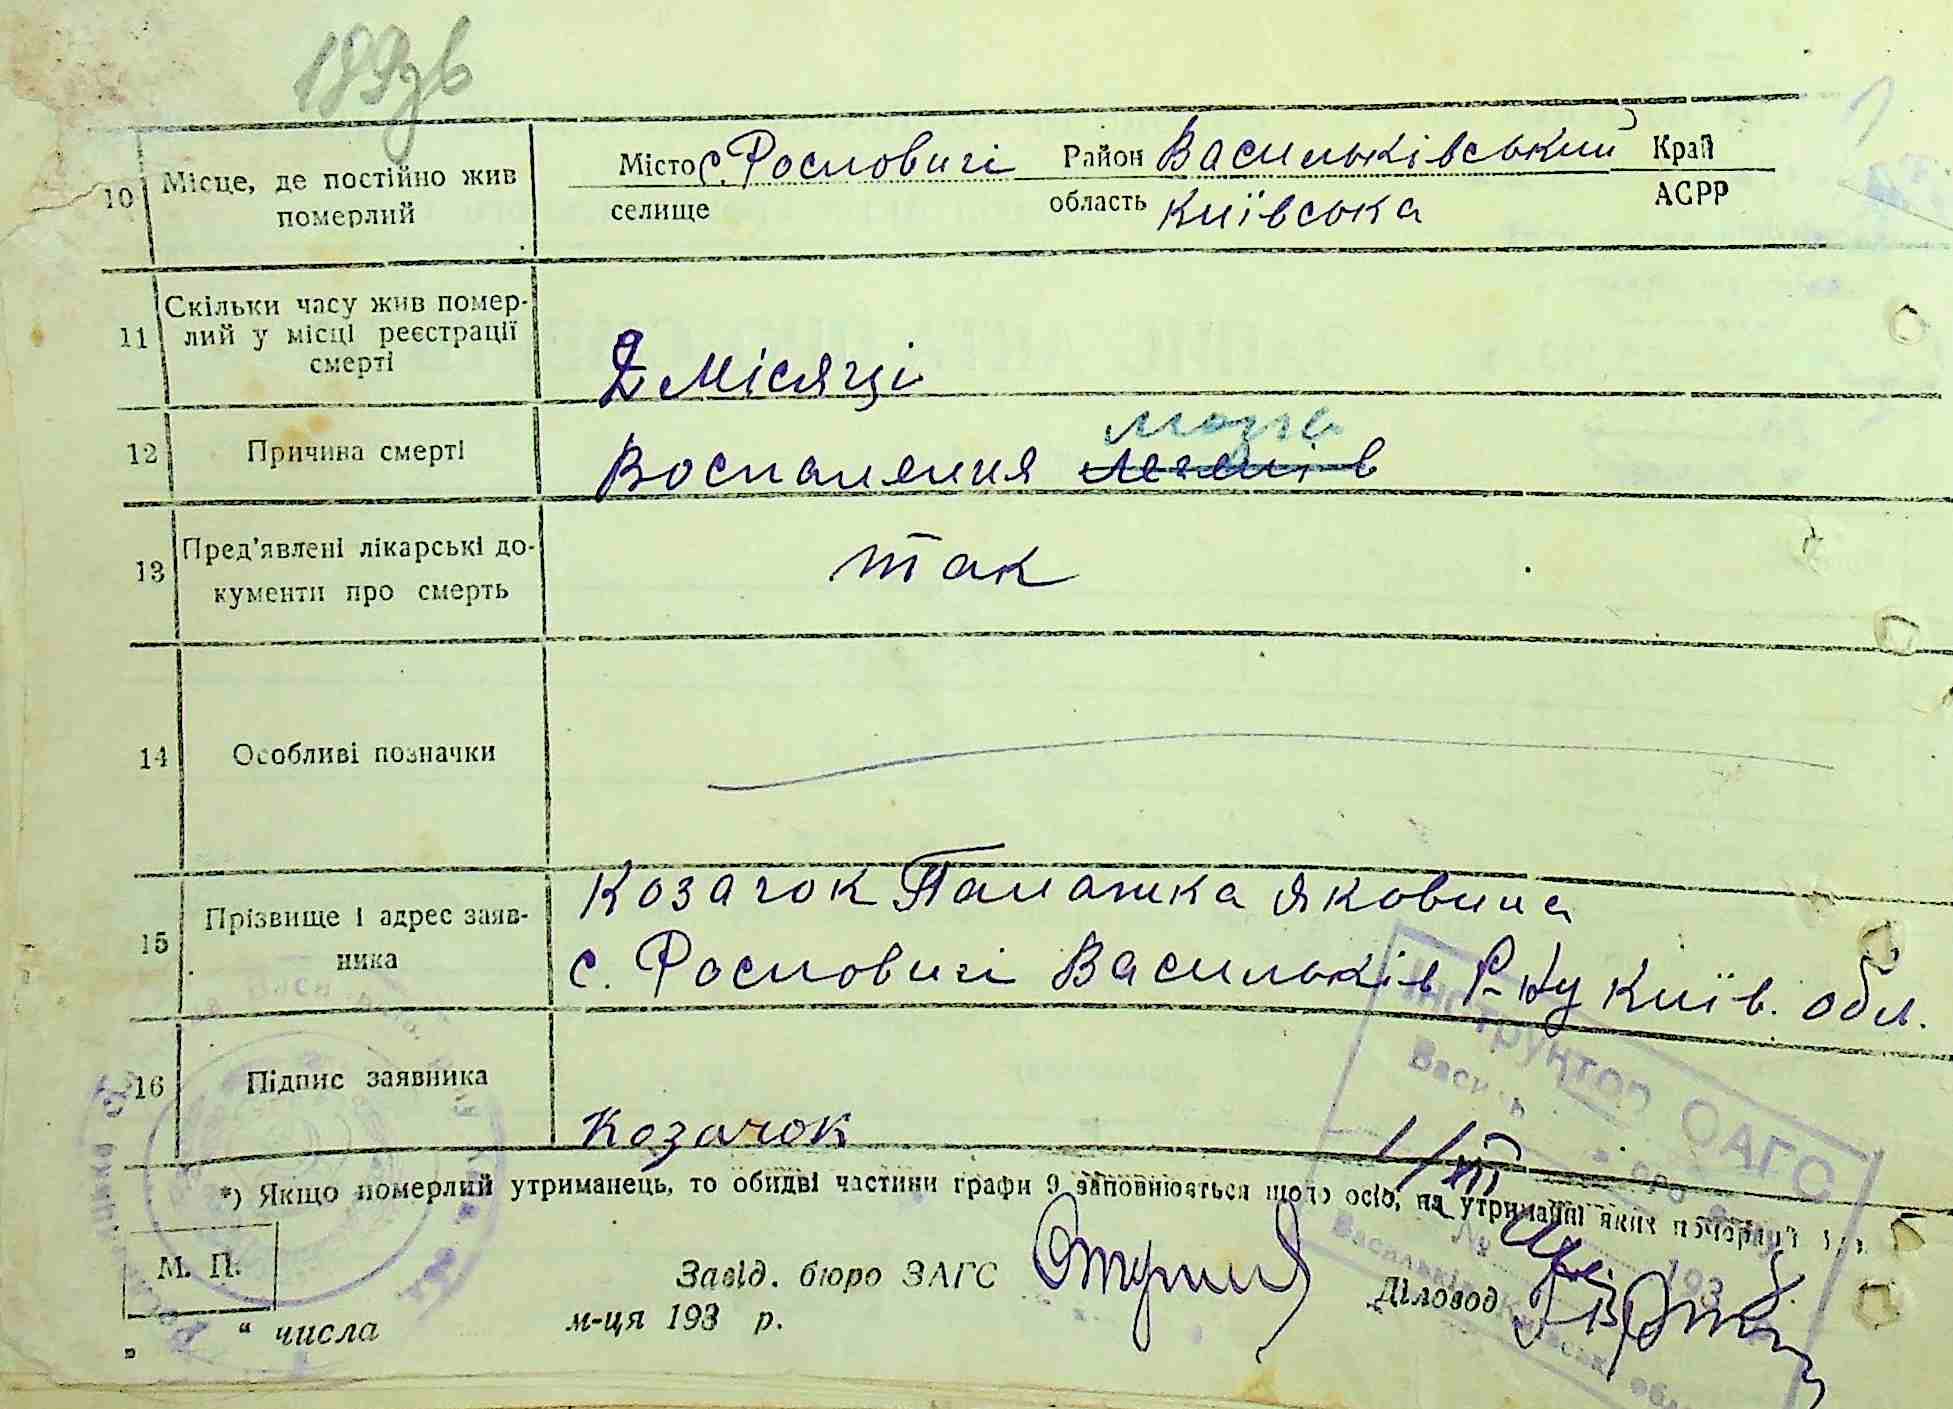 189зв
10 Місце, де постійно жив померлий
Місто с. Рословичі Район Васильківський Край
селище область Київська АСРР
11 Скільки часу жив помер-
лий у місці реєстрації
смерті
2 місяці
12 Причина смерті
мозга
Воспалення легенів
13 Пред'явлені лікарські до-
кументи про смерть
так
14 Особливі позначки
15 Прізвище і адрес заяв-
ника
Козачок Палажка Яковина
с. Рословичі Васильків р-ну Київ. обл.
16 Підпис заявника
Козачок
1/VIII
*) Якщо померлий утриманець, то обидві частини графи 9 заповнюється щодо осіб, на утриманні яких
М. П.
Завід. бюро ЗАГС
Діловод
" числа м-ця 193 р.
Інструктор ОАГС
№ 193